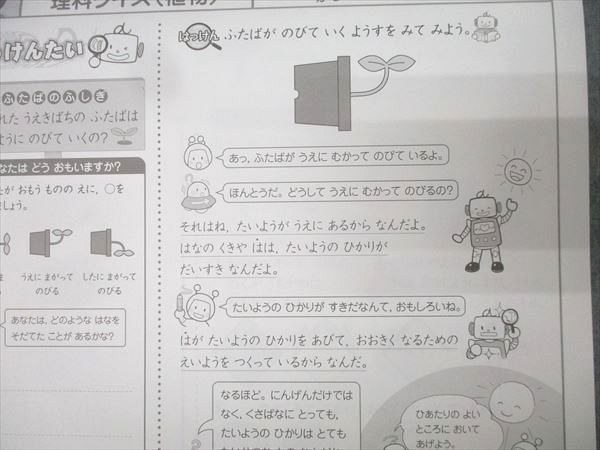 理科クイズ(植物)
っけんたい
ふたばのふしぎ
れた うえきばちの ふたばは
ように のびて いくの?
なたは どう おもいますか?
たが おもう ものの えに、○を
ましょう。
うえに まがって
のびる
したに まがって
のびる
あなたは、どのような はなを
そだてた ことが あるかな?
はっけん ふたばが のびて いく ようすを みて みよう。
あっ、ふたばが うえに むかって のびて いるよ。
ほんとうだ。どうして うえに むかって のびるの?
それはね、たいようが うえに あるから なんだよ。
はなの くきや はは、たいようの ひかりが
だいすき なんだよ。
たいようの ひかりが すきだなんて、おもしろいね。
はが たいようの ひかりを あびて、おおきく なるための
えいようを つくって いるから なんだ。
なるほど。にんげんだけでは
なく、くさばなに とっても、
たいようの ひかりは とても
ひあたりの よい
ところに おいて
あげよう。